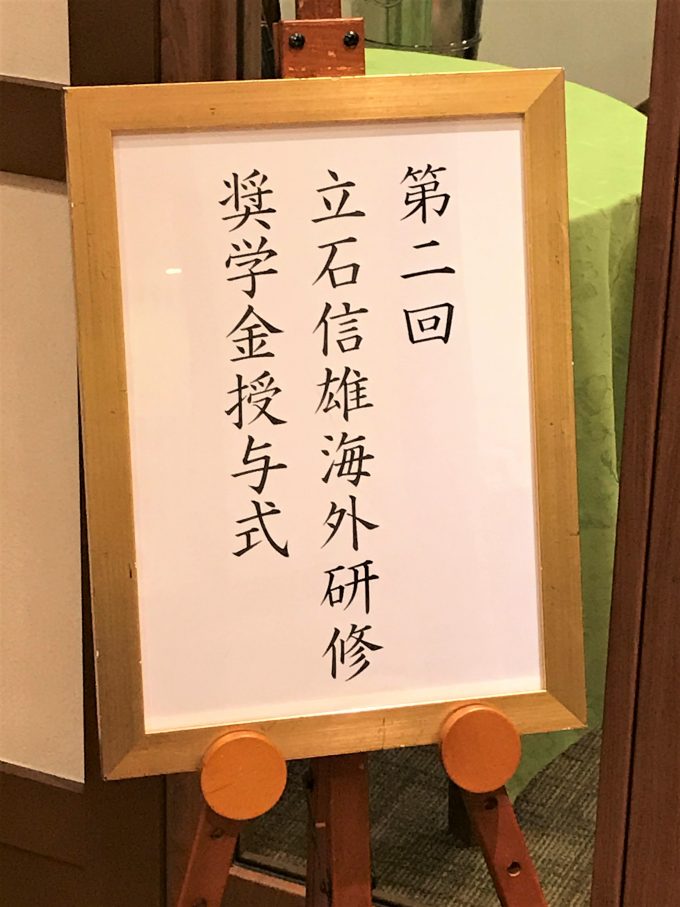 第二回
立石信雄海外研修
奨学金授与式